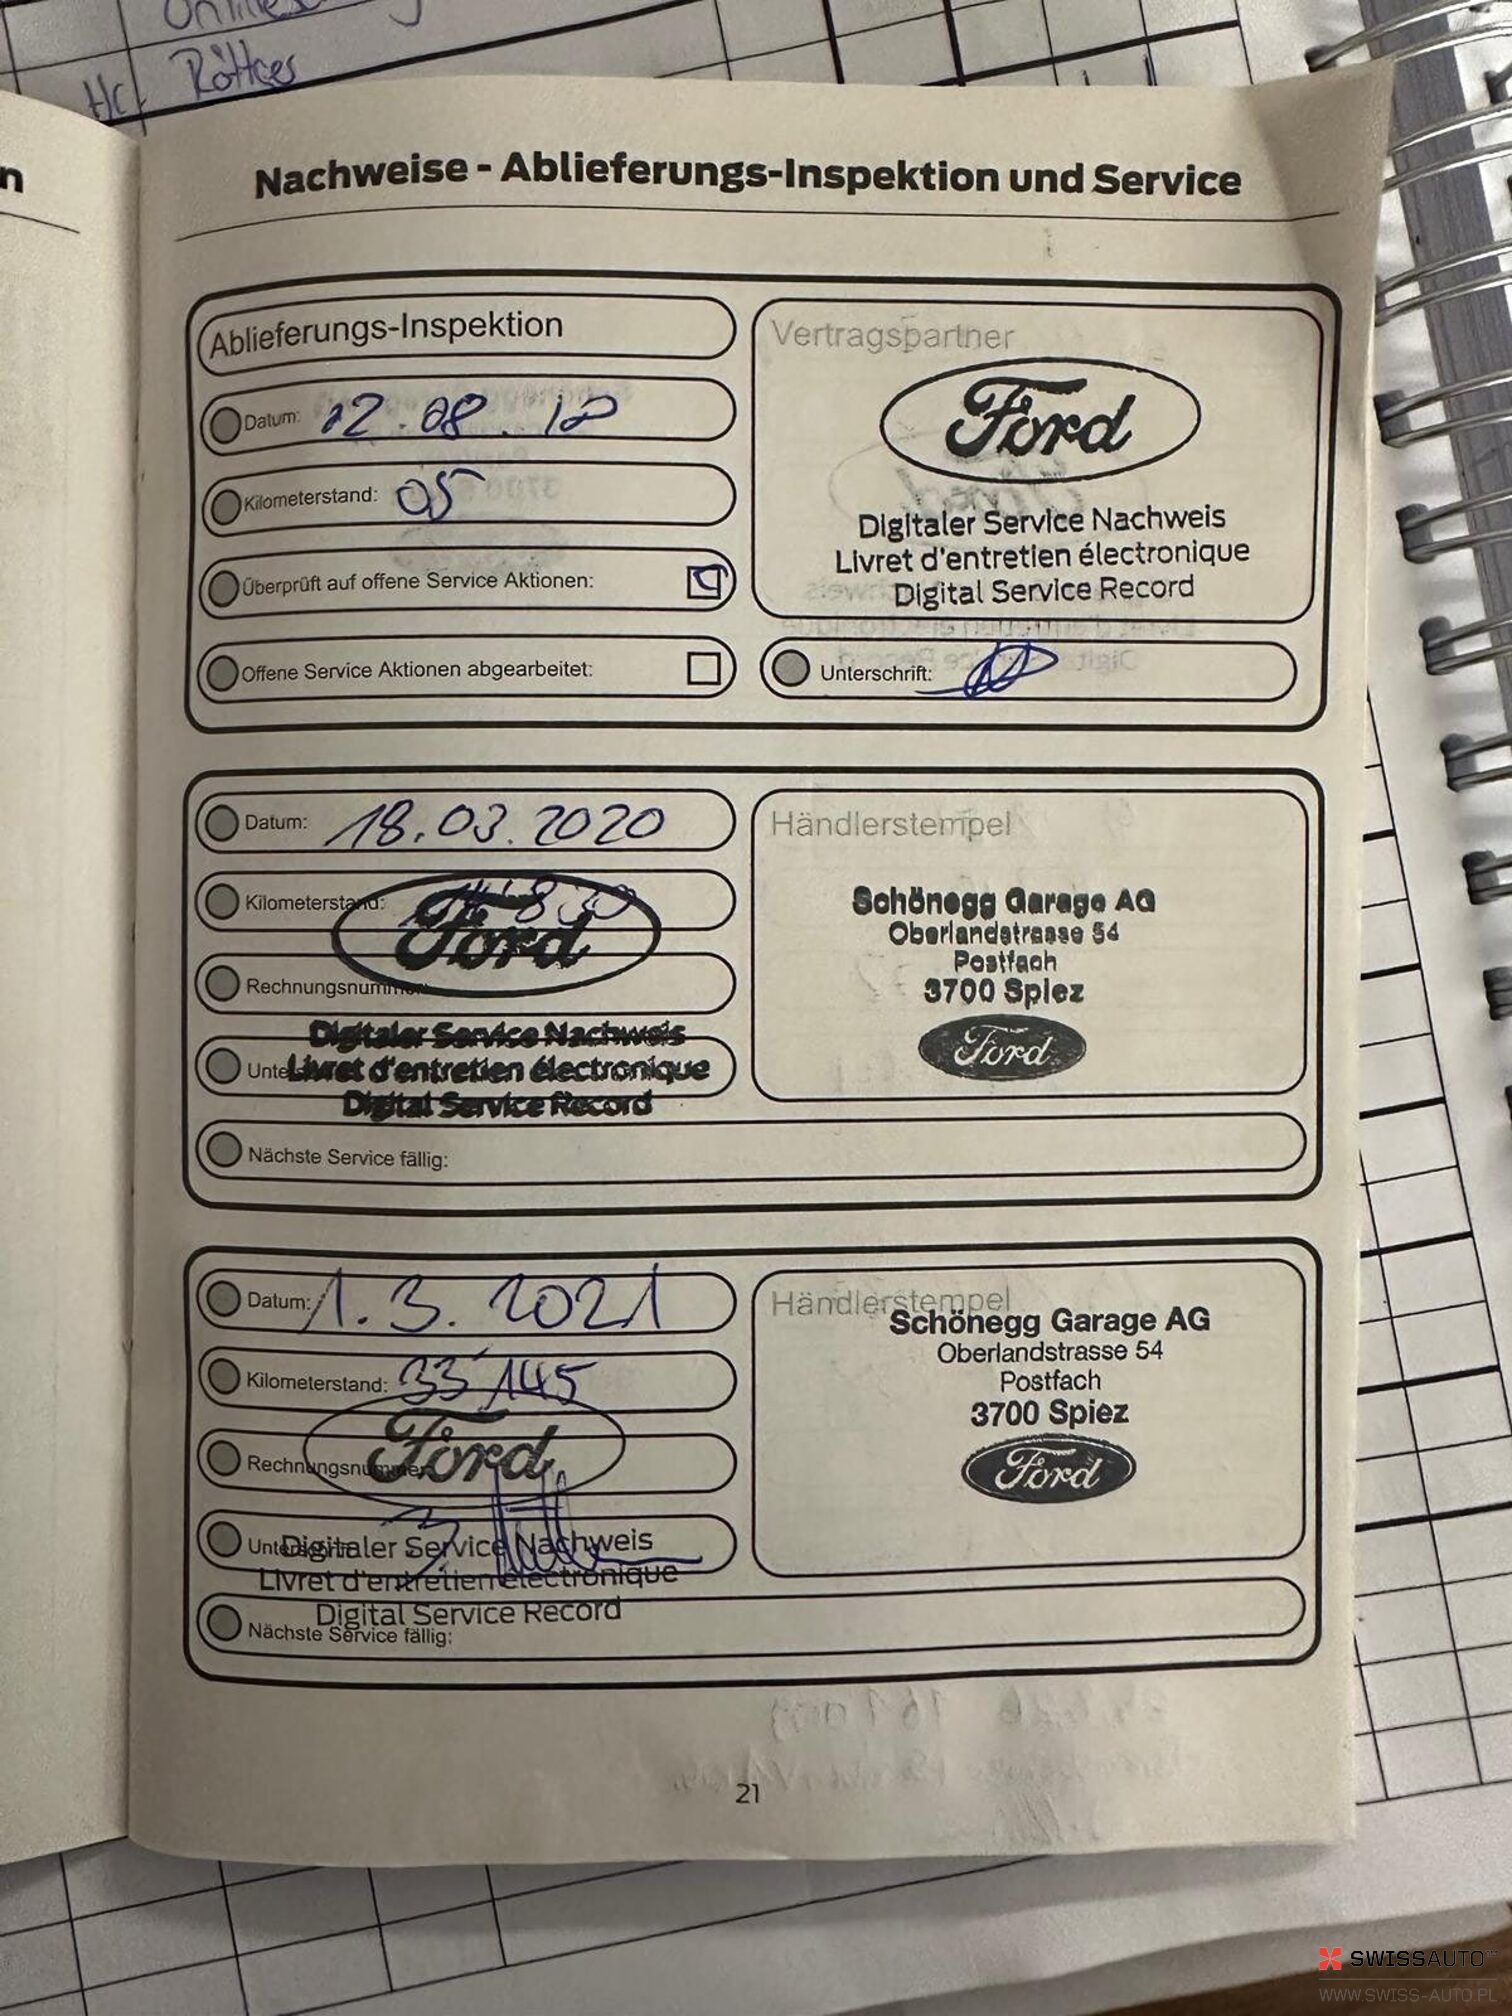 Röttger
n
Nachweise - Ablieferungs-Inspektion und Service
Ablieferungs-Inspektion
Datum: 12.08.
Kilometerstand: 05
Überprüft auf offene Service Aktionen:
Offene Service Aktionen abgearbeitet:
Vertragspartner
Ford
Digitaler Service Nachweis
Livret d'entretien électronique
Digital Service Record
Unterschrift:
Datum: 18.03.2020
Kilometerstand:
Ford
Rechnungsnummer:
Digitaler Service Nachweis
Livret d'entretien électronique
Digital Service Record
Nächste Service fällig:
Händlerstempel
Schönegg Garage AG
Oberlandstrasse 54
Postfach
3700 Spiez
Ford
Datum: 1.3.2021
Kilometerstand: 33'145
Ford
Rechnungsnummer:
Digitaler Service Nachweis
Livret d'entretien électronique
Digital Service Record
Nächste Service fällig:
Händlerstempel
Schönegg Garage AG
Oberlandstrasse 54
Postfach
3700 Spiez
Ford
21
SWISSAUTO
WWW.SWISS-AUTO.PL